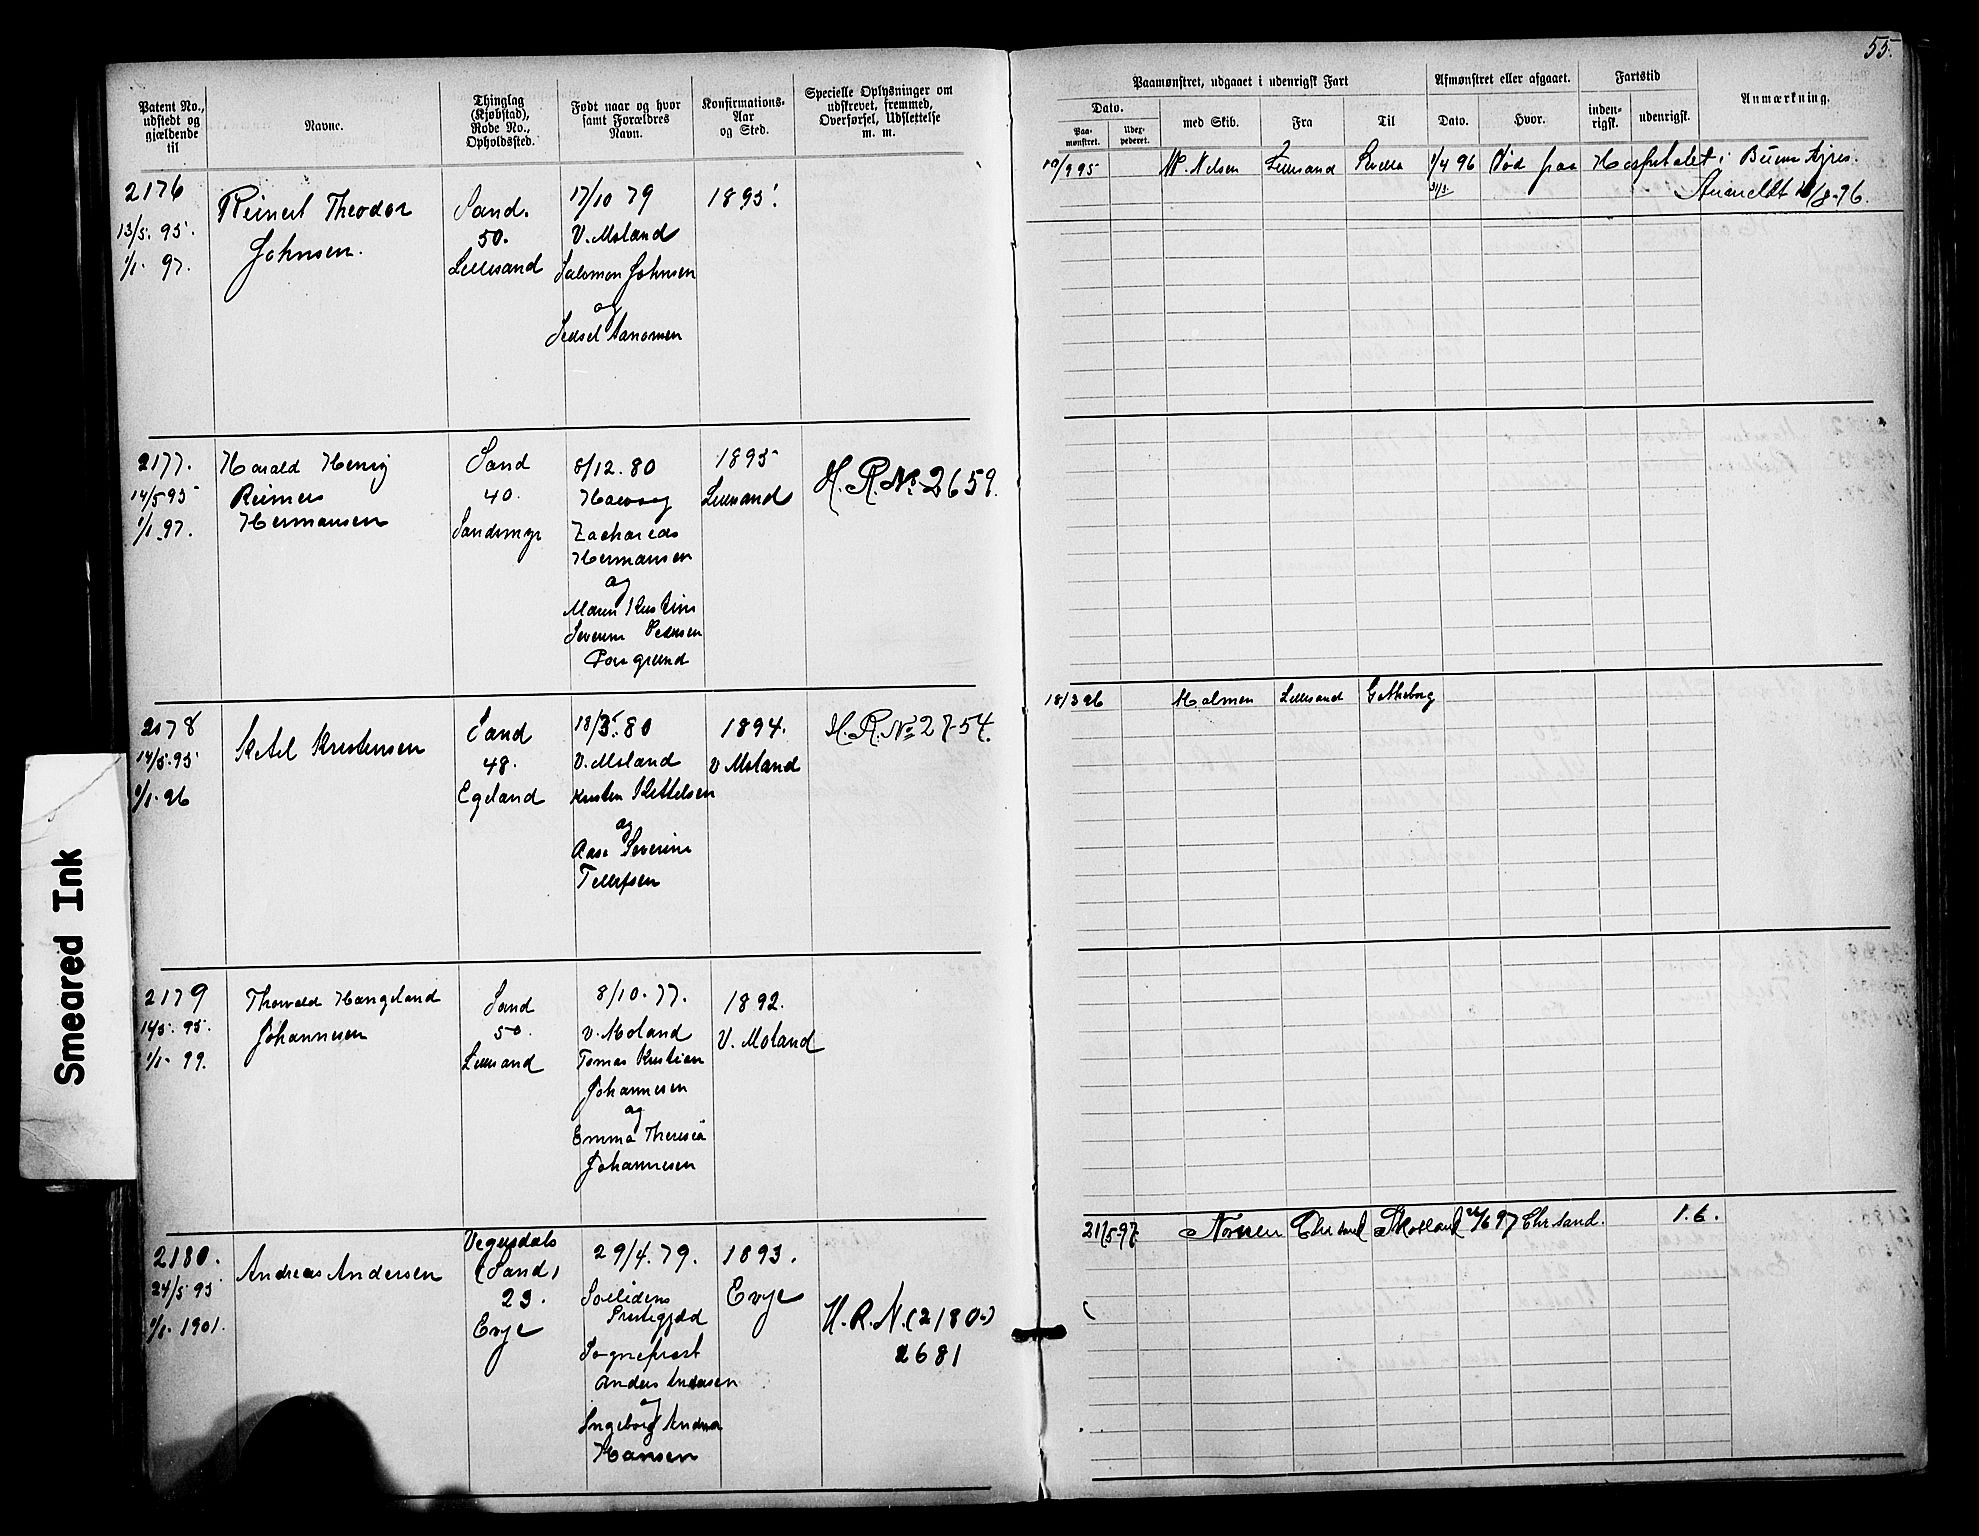 55.
Patent No., udstedt og gjældende til
Navne.
Thinglag (Kjøbstad), Rode No., Opholdssted.
Født naar og hvor samt Forældres Navn.
Konfirmations-Aar og Sted.
Specielle Oplysninger om udskrevet, fremmed, Overførsel, Udslettelse m. m.
Paamønstret, udgaaet i udenrigsk Fart
Dato.
Paamønstret.
Udexpederet.
med Skib.
Fra
Til
Afmønstret eller afgaaet.
Dato.
Hvor.
Fartstid
indenrigsk.
udenrigsk.
Anmærkning.
2176
13/5. 95.
1/1. 97.
Reinert Theodor
Johnsen.
Sand.
50.
Lillesand
17/10 79
V. Moland
Salomon Johnsen
og
Sedsel Aanonsen
1895.
10/9 95
Lillesand
1/4 96
31/3
Død paa Hospitalet i Buenos Ayres.
2177.
14/5 95
1/1. 97.
Harald Henrig
Reimers
Hermansen
Sand
40.
Sandsmyr
8/12. 80
Høivaag
Zacharias
Hermansen
og
Maren Kristine
Severine Pedersen
Porsgrund
1895
Lillesand
H. R. No 2659.
2178
14/5. 95
1/1. 96
Ketel Kristensen
Sand
48.
Egeland
18/3. 80
V. Moland
Kristen Kettelsen
og
Aase Severine
Tellefsen
1894.
V Moland
H. R. No 2754.
18/3 96
Holmen
Lillesand
Gøtheborg
2179
14/5. 95.
1/1. 99.
Thorvald Hangeland
Johannesen
Sand
50.
Lillesand
8/10. 77.
V. Moland
Tomas Kristian
Johannesen
og
Emma Theresia
Johannesen
1892.
V. Moland
2180.
24/5 95
1/1. 1901.
Andreas Andersen
Vegusdals
(Sand)
23.
Evje
29/4. 79.
Prestegjæld
Anders Andersen
og
Ingeborg Andrea
Hansen
1893.
Evje
H. R. N. (2180.)
2681
21/5. 97.
Norden
Chrsand
Skotland
/6 97
Chrsand.
1. 6.
Smeared Ink